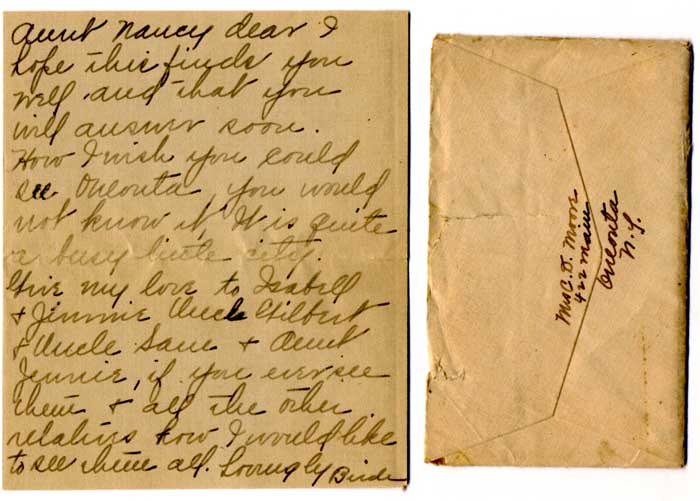 Aunt Nancy dear I
hope this finds you
well and that you
will answer soon.
How I wish you could
see Oneonta, you would
not know it, It is quite
a busy little city.
Give my love to Isabell
& Jimmie Uncle Gilbert
& Uncle Sam & Aunt
Jennie, if you ever see
them & all the other
relatives how I would like
to see them all. Lovingly Birdie
Mrs C. D. Moon
422 Main
Oneonta
N.Y.